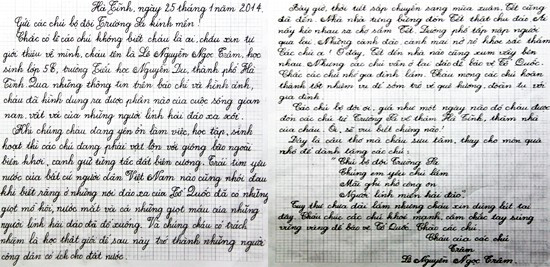 Hà Tĩnh, ngày 25 tháng 1 năm 2014.
Gửi các chú bộ đội Trường Sa kính mến!
Chắc có lẽ các chú không biết cháu là ai, cháu xin tự
giới thiệu về mình, cháu tên là Lê Nguyễn Ngọc Trâm, học
sinh lớp 5E, trường Tiểu học Nguyễn Du, thành phố Hà
Tĩnh. Qua những thông tin trên báo chí và hình ảnh,
cháu đã hình dung ra được phần nào của cuộc sống gian
nan, vất vả của những người lính hải đảo xa xôi.
Khi chúng cháu đang yên ổn làm việc, học tập, sinh
hoạt thì các chú đang phải vật lộn với giông bão ngoài
biển khơi, canh giữ từng tấc đất biên cương. Trái tim yêu
nước của bất cứ người dân Việt Nam nào cũng nhói đau
khi biết rằng ở những nơi đảo xa của Tổ Quốc đã có những
giọt mồ hôi, nước mắt và cả những giọt máu của những
người lính hải đảo đã đổ xuống. Và chúng cháu có trách
nhiệm là học thật giỏi để sau này trở thành những người
công dân có ích cho đất nước.
Bây giờ, thời tiết sắp chuyển sang mùa xuân, Tết cũng
đã đến. Nhà nhà tưng bừng đón Tết thật chu đáo. Ai
nấy kéo nhau ra chợ sắm Tết. Đường phố tấp nập người
qua lại. Những cành đào, cành mai nở rộ khoe sắc thắm.
Các chú ạ! Ở đây, Tết đến nhà nào cũng sum vầy bên
nhau. Nhưng các chú vẫn ở lại đảo để bảo vệ Tổ Quốc.
Chắc các chú nhớ gia đình lắm. Cháu mong các chú hoàn
thành tốt nhiệm vụ để sớm trở về quê hương, đoàn tụ với
gia đình.
Các chú bộ đội ơi, giá như một ngày nào đó cháu được
đón các chú từ Trường Sa về thăm Hà Tĩnh, thăm nhà
của cháu. Ôi, sẽ vui biết chừng nào!
Đây là câu thơ mà cháu sưu tầm, thay cho món quà
nhỏ để dành tặng các chú:
"Chú bộ đội Trường Sa
Chúng em yêu chú lắm
Mãi ghi nhớ công ơn
Người lính miền hải đảo"
Tuy thư chưa dài lắm nhưng cháu xin dừng bút tại
đây. Cháu chúc các chú khỏe mạnh, cầm chắc tay súng
vững vàng để bảo vệ Tổ Quốc. Chào các chú.
Cháu của các chú
Trâm
Lê Nguyễn Ngọc Trâm.